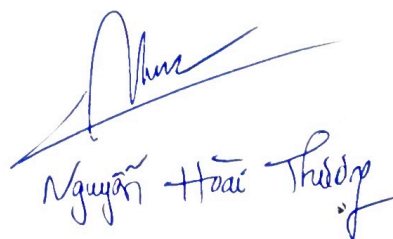 Nguyễn Hoài Thương